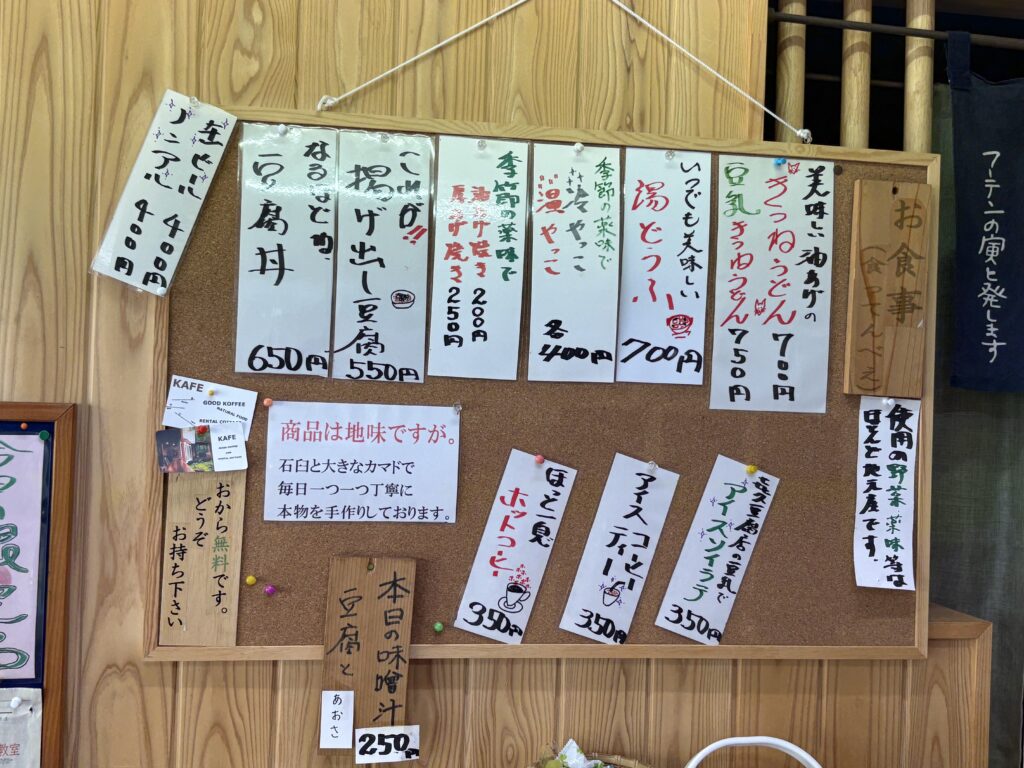 お食事
美味しい油あげの
きつねうどん 700円
豆乳きつねうどん 750円
いつでも美味しい
湯どうふ
700円
季節の薬味で
冷やっこ
温やっこ
各400円
季節の薬味で
油あげ焼き 200円
厚あげ焼き 250円
これが!!
揚げ出し豆腐
550円
なるほどね、
豆腐丼
650円
生ビール 400円
ノンアル 400円
使用の野菜 薬味等は
ほとんど地元産です。
豆腐店の豆乳で
アイスソイラテ
350円
アイスコーヒー
ティー
350円
ほっと一息
ホットコーヒー
350円
商品は地味ですが。
石臼と大きなカマドで
毎日一つ一つ丁寧に
本物を手作りしております。
KAFE
GOOD KOFFEE
NATURAL FOOD
RENTAL COTTAGE
KAFE
おから無料です。
どうぞ
お持ち下さい
本日の味噌汁
豆腐と
あおさ
250円
教室